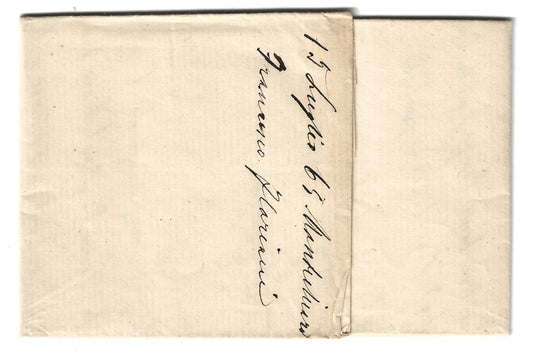 15 Luglio 65 Montechiaro
Francesco Floriani